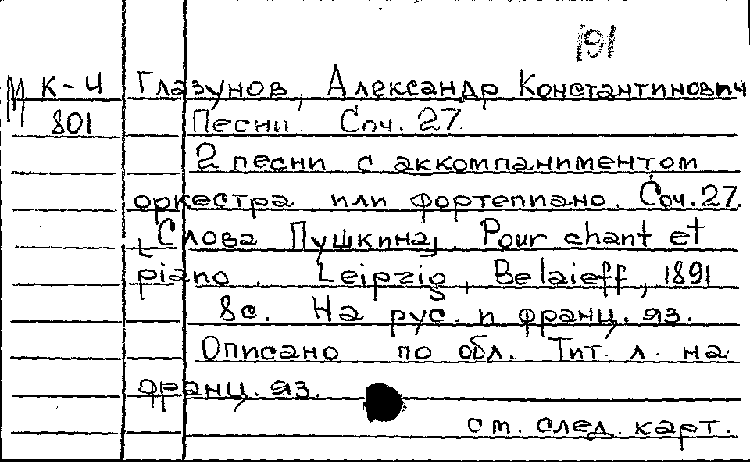 191
М К-4 Глазунов, Александр Константинович
801 Песни. Соч. 27.
2 песни с аккомпаниментом
оркестра или фортепиано. Соч. 27.
[Слова Пушкина]. Pour chant et
piano. Leipzig, Belaieff, 1891
8с. На рус. и франц. яз.
Описано по обл. Тит. л. на
франц. яз.
см. след. карт.